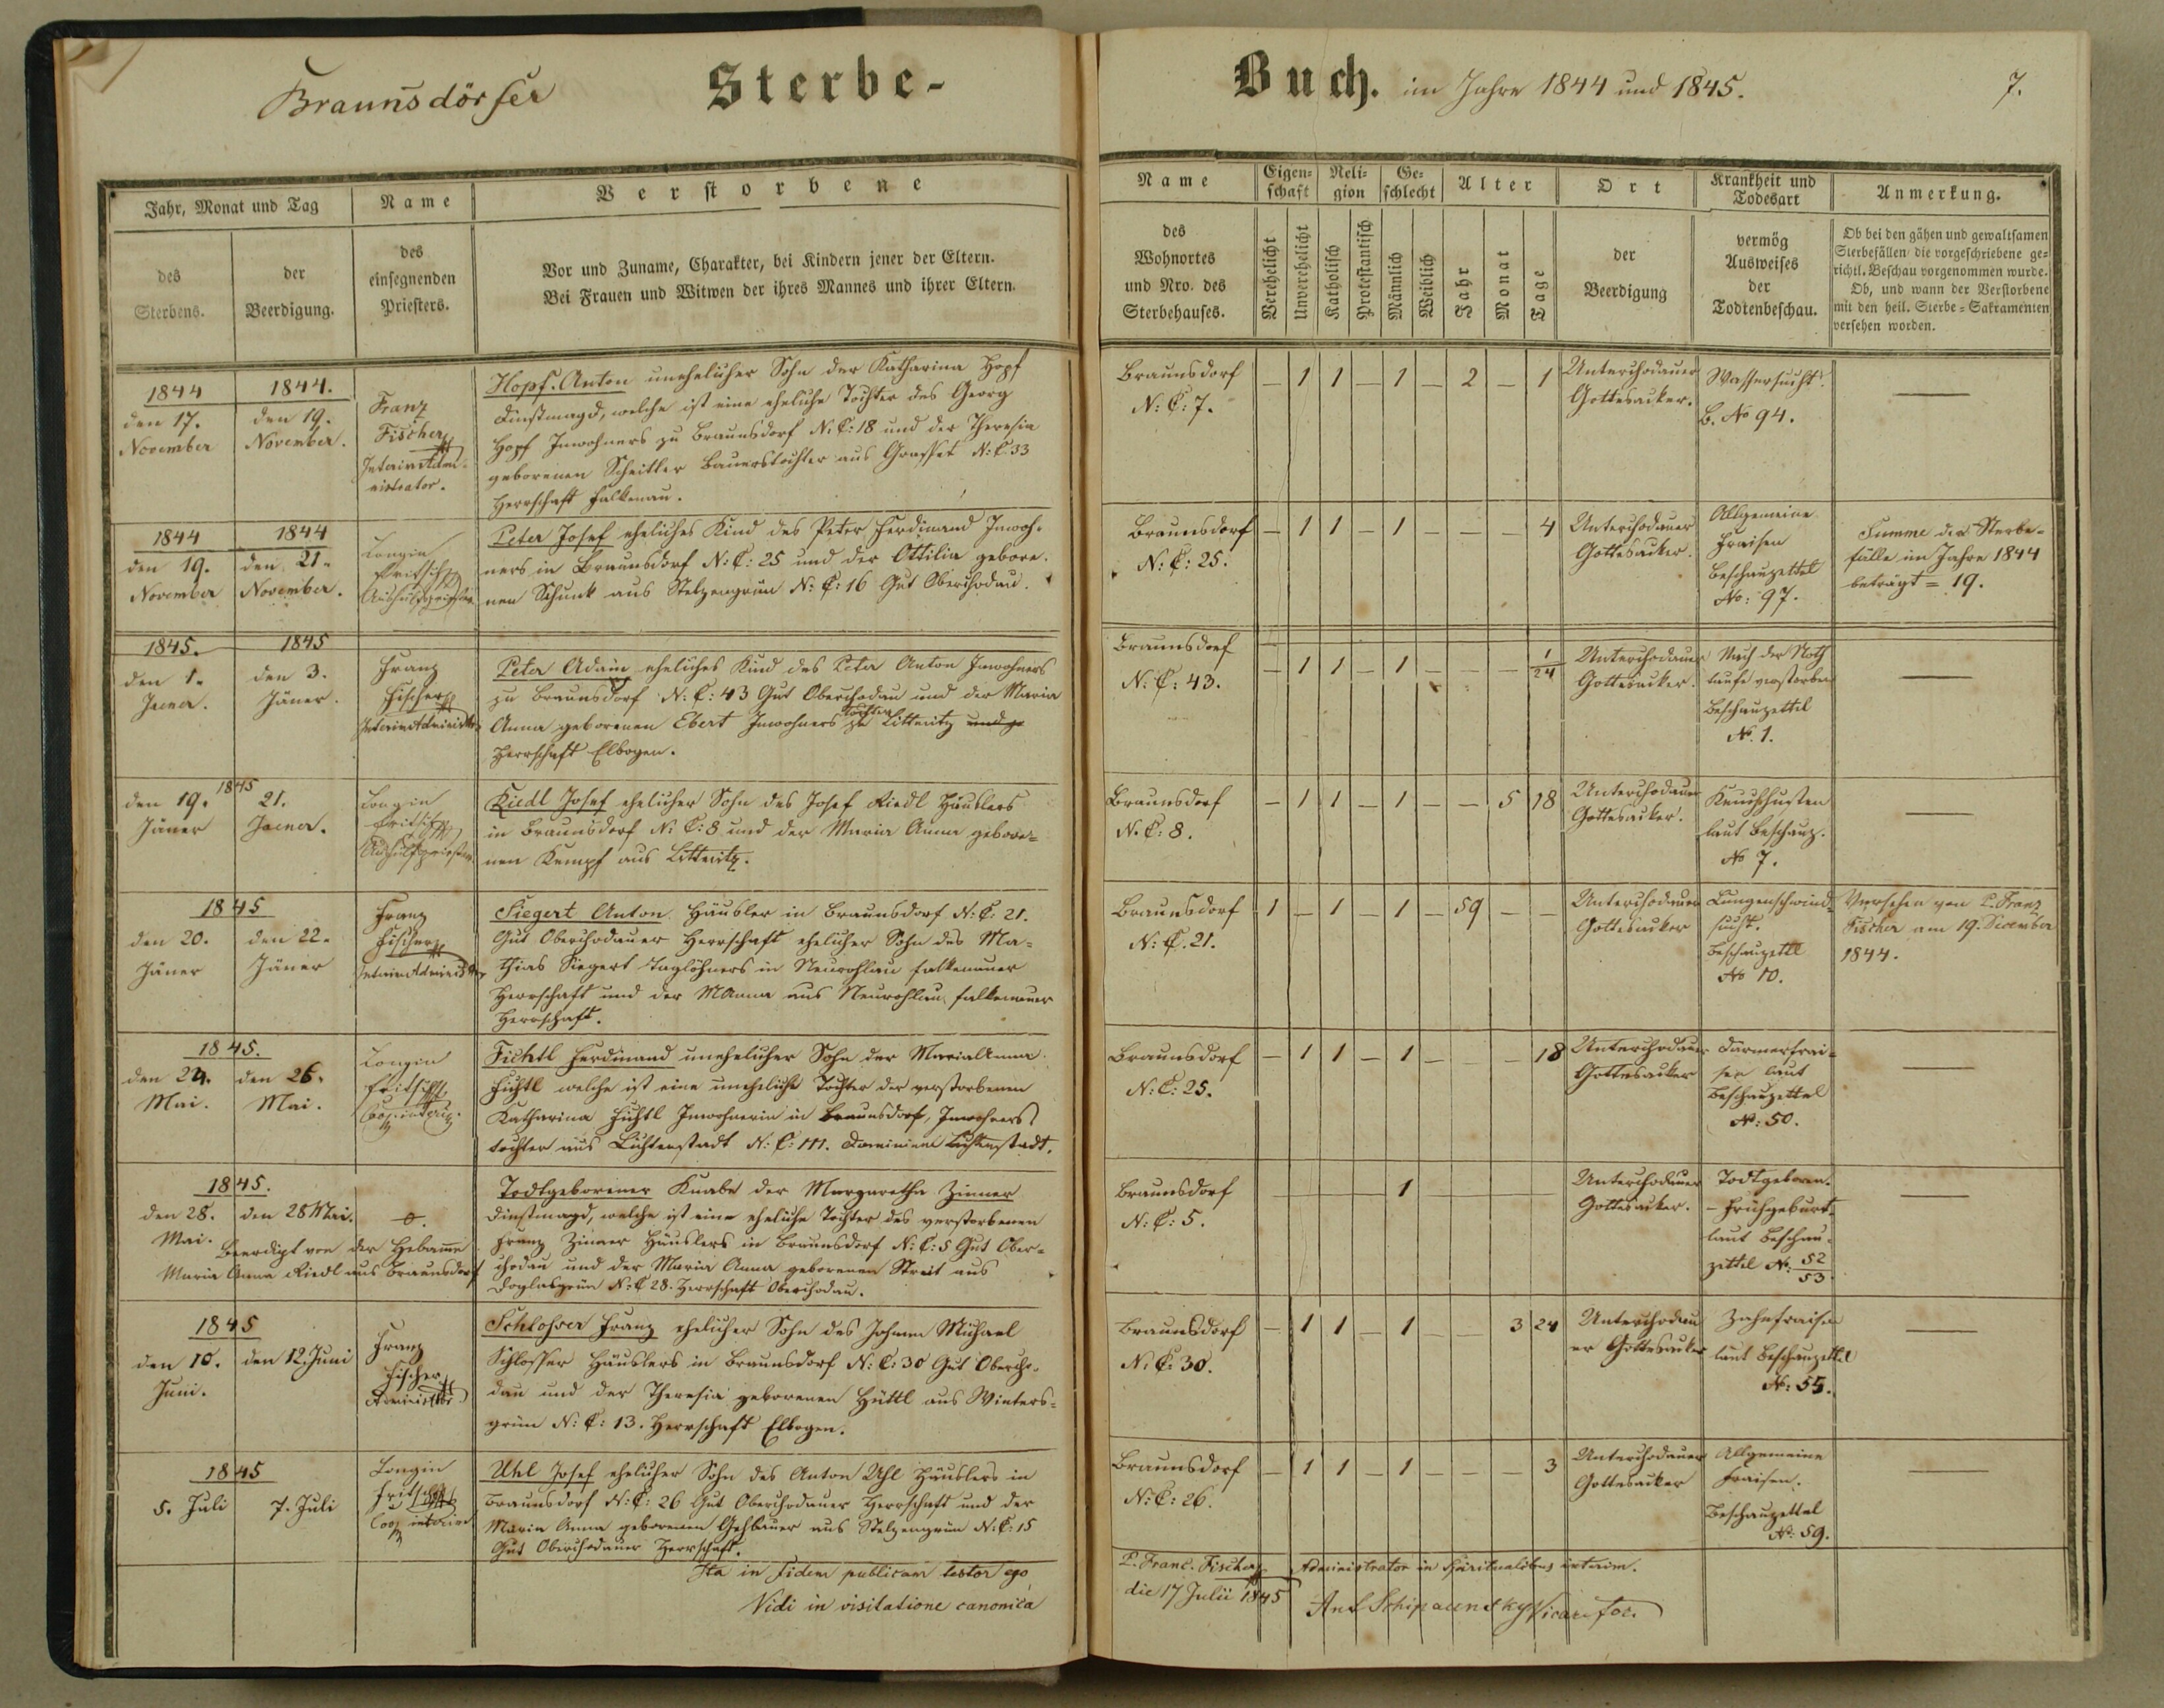 Braunsdörfer Sterbe-
Buch. im Jahre 1844 und 1845.
7.
Jahr, Monat und Tag
des
Sterbens.
der
Beerdigung.
Name
des
einsegnenden
Priesters.
Verstorbene
Vor und Zuname, Charakter, bei Kindern jener der Eltern.
Bei Frauen und Witwen der ihres Mannes und ihrer Eltern.
Name
des
Wohnortes
und Nro. des
Sterbehauses.
Eigen-
schaft
Verehelicht
Unverehelicht
Reli-
gion
Katholisch
Protestantisch
Ge-
schlecht
Männlich
Weiblich
Alter
Jahr
Monat
Tage
Ort
der
Beerdigung
Krankheit und
Todesart
vermög
Ausweises
der
Todtenbeschau.
Anmerkung.
Ob bei den gähen und gewaltsamen
Sterbefällen die vorgeschriebene ge-
richtl. Beschau vorgenommen wurde.
Ob, und wann der Verstorbene
mit den heil. Sterbe-Sakramenten
versehen worden.
1844
den 17.
November
1844.
den 19.
November.
Franz
Fischer
Interim Admi-
nistrator.
Hopf. Anton unehelicher Sohn der Katharina Hopf
Dinstmagd, welche ist eine eheliche Tochter des Georg
Hopf Inwohners zu Braunsdorf N: C: 18 und der Theresia
geborenen Scheitler Bauerstochter aus Grasset N: C. 33
Herrschaft Falkenau.
Braunsdorf
N: C: 7.
– 1 1 – 1 – 2 – 1
Unterchodauer
Gottesacker.
Wassersucht.
B. No 94.
1844
den 19.
November
1844
den 21.
November.
Longin
Fritsch
Aushilfspriester
Peter Josef eheliches Kind des Peter Ferdinand Inwoh-
ners in Braunsdorf N: C: 25 und der Ottilia gebore-
nen Schunk aus Stelzengrün N: C: 16 Gut Oberchodau.
Braunsdorf
N: C: 25.
– 1 1 – 1 – – – 4
Unterchodauer
Gottesacker.
Allgemeine
Fraisen
Beschauzettel
No: 97.
Summe der Sterbe-
fälle im Jahre 1844
beträgt = 19.
1845.
den 1.
Jener.
1845
den 3.
Jäner.
Franz
Fischer
Peter Adam eheliches Kind des Peter Anton Inwohners
zu Braunsdorf N: C: 43 Gut Oberchodau und der Maria
Anna geborenen Ebert Inwohners Tochter zu Littmitz und ge
Herrschaft Elbogen.
Braunsdorf
N: C: 43.
– 1 1 – 1 – – – 1/24
Unterchodauer
Gottesacker.
Nach der Noth
taufe verstorben
Beschauzettel
No. 1.
1845
den 19.
Jäner
21.
Jaener.
Longin
Fritsch
Aushilfspriester.
Riedl Josef ehelicher Sohn des Josef Riedl Häuslers
in Braunsdorf N: C: 8 und der Maria Anna gebore-
nen Kempf aus Littmitz.
Braunsdorf
N. C: 8.
– 1 1 – 1 – – 5 18
Unterchodauer
Gottesacker.
Keuchhusten
laut Beschauz.
No 7.
1845
den 20.
Jäner
den 22.
Jäner
Franz
Fischer
Siegert Anton Häusler in Braunsdorf N: C. 21.
Gut Oberchodauer Herrschaft ehelicher Sohn des Ma-
thias Siegert Taglöhners in Neurohlau falkenauer
Herrschaft und der MAnna aus Neurohlau falkenauer
Herrschaft.
Braunsdorf
N: C. 21.
1 – 1 – 1 – 59 – –
Unterchodauer
Gottesacker
Lungenschwind-
sucht.
Beschauzettel
No 10.
Versehen von P. Franz
Fischer am 19. December
1844.
1845.
den 24.
Mai.
den 26.
Mai.
Longin
Fritsch
Coop. interim.
Fichtl Ferdinand unehelicher Sohn der Maria Anna
Fichtl welche ist eine uneheliche Tochter der verstorbenen
Katharina Fichtl Inwohnerin in Braunsdorf, Inwohners
tochter aus Lichtenstadt N: C: 111. Dominium Lichtenstadt.
Braunsdorf
N: C: 25.
– 1 1 – 1 – – – 18
Unterchodauer
Gottesacker
Darmerfrai-
sen laut
Beschauzettel
No: 50.
1845.
den 28.
Mai.
den 28 Mai.
Beerdigt von der Hebame
Maria Anna Riedl aus Braunsdorf
Todtgeborener Knabe der Margaretha Zinner
Dinstmagd, welche ist eine eheliche Tochter des verstorbenen
Franz Zinner Häuslers in Braunsdorf N: C: 5 Gut Ober-
chodau und der Maria Anna geborenen Streit aus
Doglasgrün N: C 28. Herrschaft Oberchodau.
Braunsdorf
N: C: 5.
– – – – 1 – – – –
Unterchodauer
Gottesacker.
Todtgeboren.
– Frühgeburt
laut Beschau-
zettel No: 52/53
1845
den 10.
Juni.
den 12. Juni
Franz
Fischer
Schlosser Franz ehelicher Sohn des Johann Michael
Schlosser Häuslers in Braunsdorf N: C: 30 Gut Obercho-
dau und der Theresia geborenen Hüttl aus Winters-
grün N: C: 13. Herrschaft Elbogen.
Braunsdorf
N: C: 30.
– 1 1 – 1 – – 3 24
Unterchodau
er Gottesacker
Zahnfraisen
laut Beschauzettel
No: 55.
1845
5. Juli
7. Juli
Longin
Fritsch
Coop interim
Uhl Josef ehelicher Sohn des Anton Uhl Häuslers in
Braunsdorf N: C: 26 Gut Oberchodauer Herrschaft und der
Maria Anna geborenen Gehbauer aus Stelzengrün N: C: 15
Gut Oberchodauer Herrschaft.
Braunsdorf
N: C: 26.
– 1 1 – 1 – – – 3
Unterchodauer
Gottesacker
Allgemeine
Fraisen.
Beschauzettel
No: 59.
Ita in fidem publicam testor ego
P. Franc. Fischer Administrator in Spiritualibus interim.
Vidi in visitatione canonica
die 17 Julii 1845